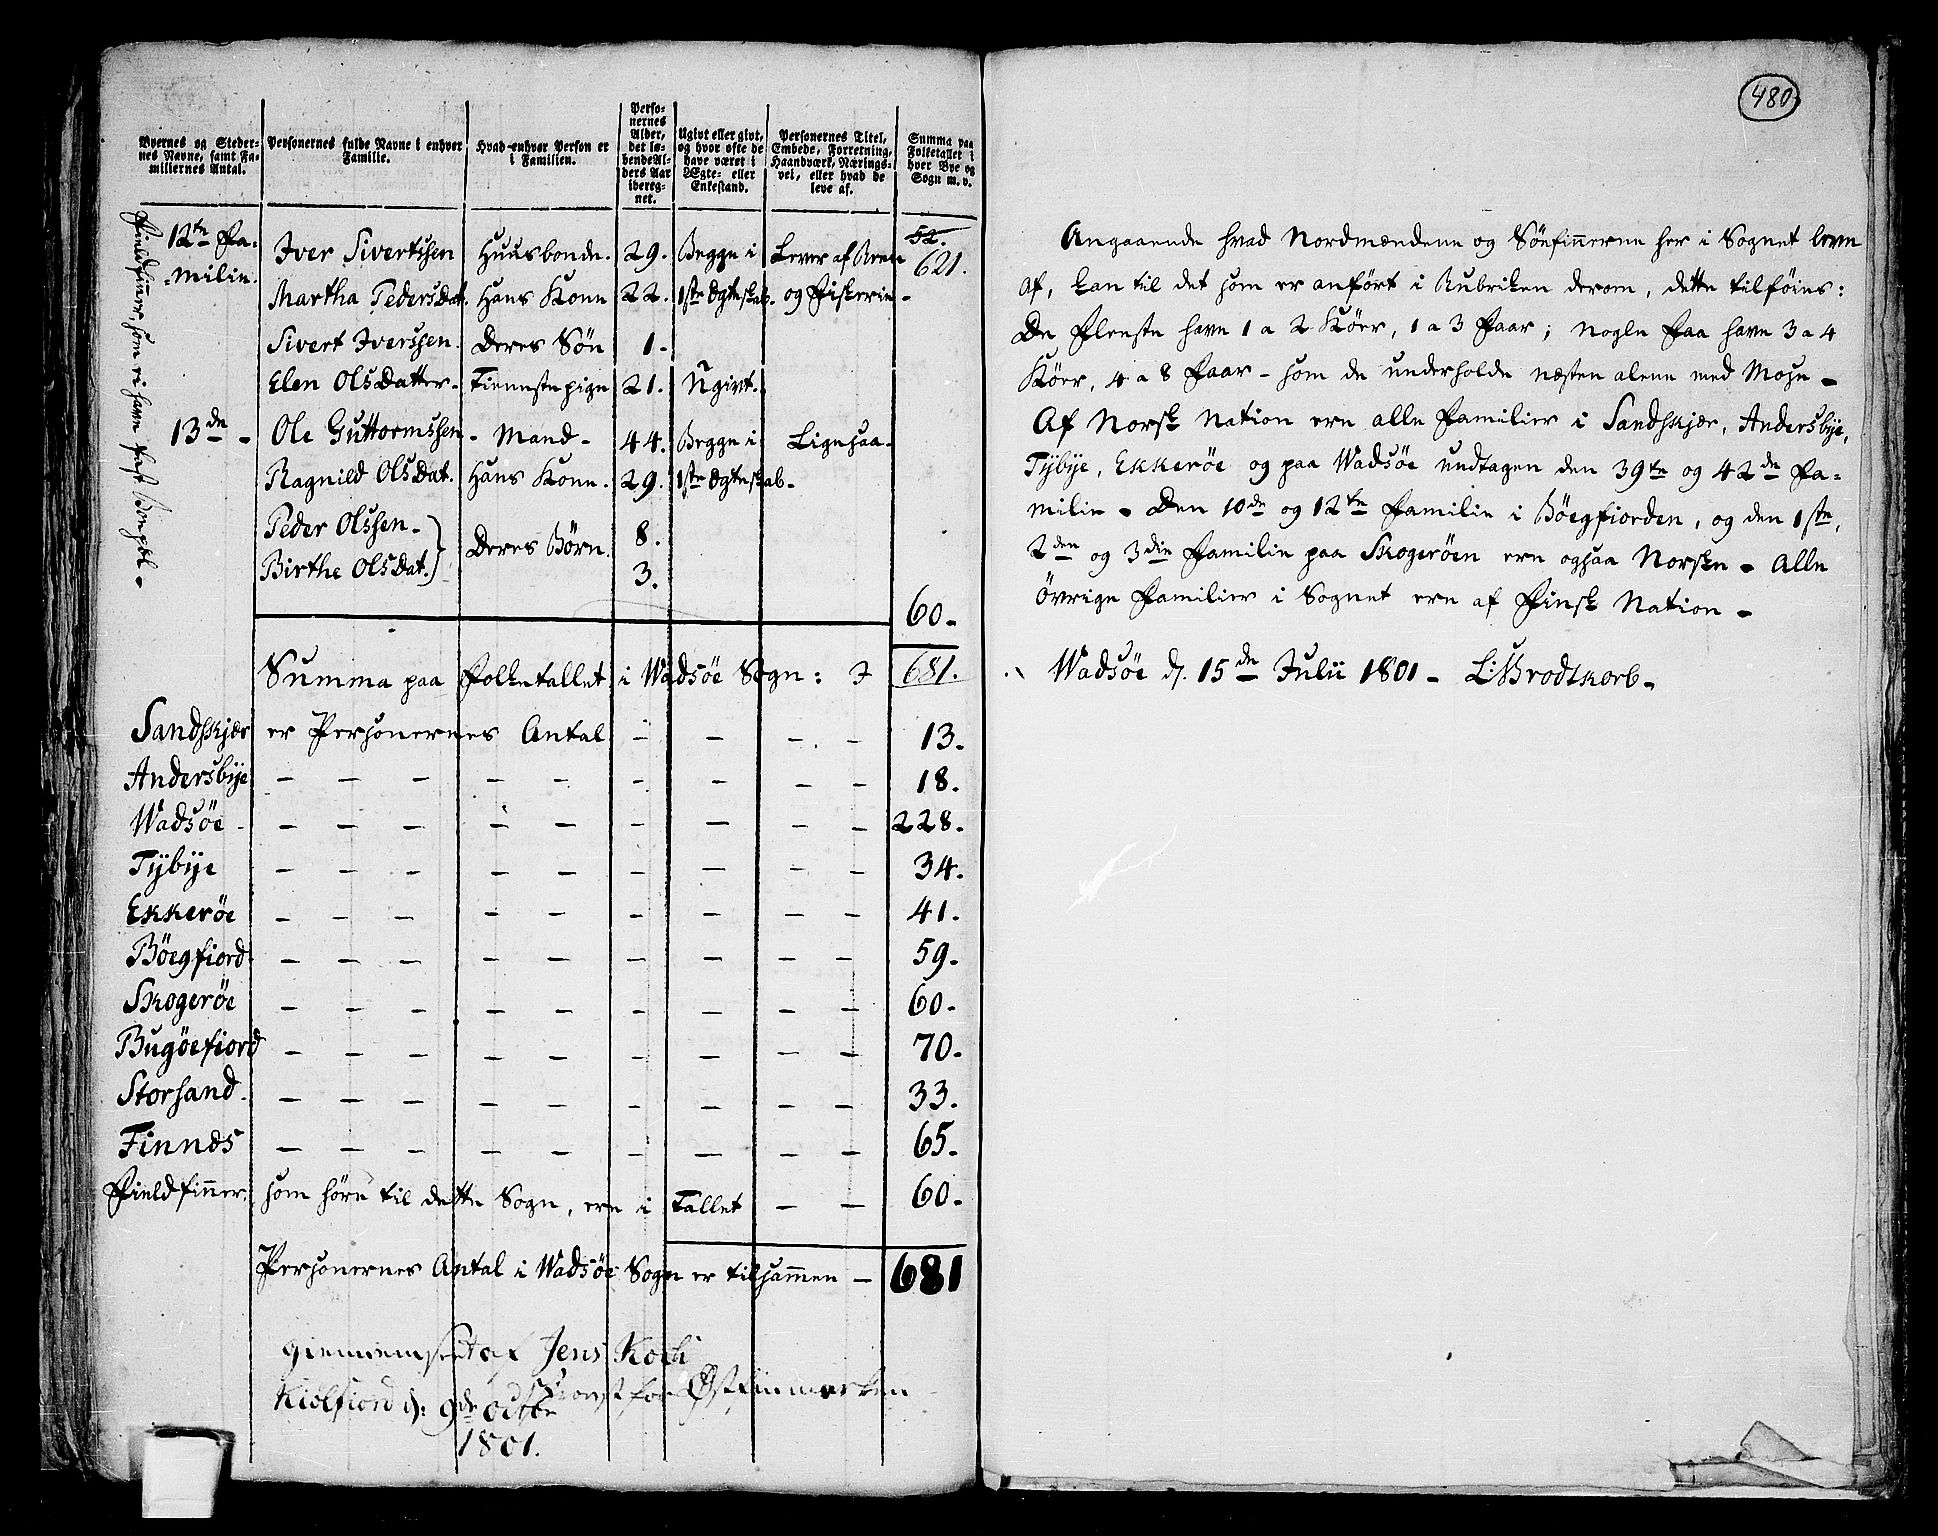 480
Byernes og Steder-
nes Navne, samt Fa-
miliernes Antal.
Personernes fulde Navne i enhver
Familie.
Hvad enhver Person er
i Familien.
Perso-
nernes
Alder,
det lø-
bende Al-
ders Aar
ibereg-
net.
Ugivt eller givt,
og hvor ofte de
have været i
Ægte- eller
Enkestand.
Personernes Titel,
Embede, Forretning,
Haandværk, Nærings-
vei, eller hvad de
leve af.
Summa paa
Folketallet i
hver Bye og
Sogn m. v.
Fieldfinner, som ei have fast Boepæl -
12te Fa- Iver Sivertssen Huusbonde. 29. Begge i Lever af Reen 52.
milie. Martha Pedersdat. Hans Kone 22. 1ste Ægteskab. og Fiskerie - 621.
Sivert Iverssen. Deres Søn 1.
Elen Olsdatter. Tienestepige 21. Ugivt.
13de - Ole Guttormssen - Mand - 44. Begge i Ligesaa -
Ragnild Olsdat. Hans Kone. 29. 1ste Ægteskab.
Peder Olssen. Deres Børn. 8.
Birthe Olsdat. 3.
60.
Summa paa Folketallet i Wadsöe Sogn: 681.
Sandskjær er Personernes Antal - - - - 13.
Andersbye - - - 18.
Wadsöe - - - 228.
Tÿbÿe - - - 34.
Ekkeröe - - - 41.
Böegfiord - - - 59.
Skogeröe - - - 60.
Bugöefiord - - - 70.
Storsand - - - 33.
Finnes - - - 65.
Fieldfinner, som höre til dette Sogn, ere i Tallet - - 60.
Personernes Antal i Wadsöe Sogn er tilsammen - 681
Giennemseet af Jens Koch
Const for Østfinmarken
Kiölfiord d: 9de Octbr
1801.
Angaaende hvad Nordmændene og Söefinnerne her i Sognet leve
af, kan til det som er anfört i Rubriken derom, dette tilföies:
De fleeste have 1 a 2 Köer, 1 a 3 Faar; nogle faa have 3 a 4
Köer, 4 a 8 Faar - som de underholde næsten alene med Mose -
Af Norsk Nation ere alle Familier i Sandskjær, Andersbÿe,
Tÿbÿe, Ekkeröe og paa Wadsöe undtagen den 39te og 42de Fa-
milie - Den 10de og 12te Familie i Böegfiorden, og den 1ste,
2den og 3die Familie paa Skogeröen ere ogsaa Norske - Alle
övrige Familier i Sognet ere af Finsk Nation -
Wadsöe d. 15de Julii 1801 - L: Brodtkorb -